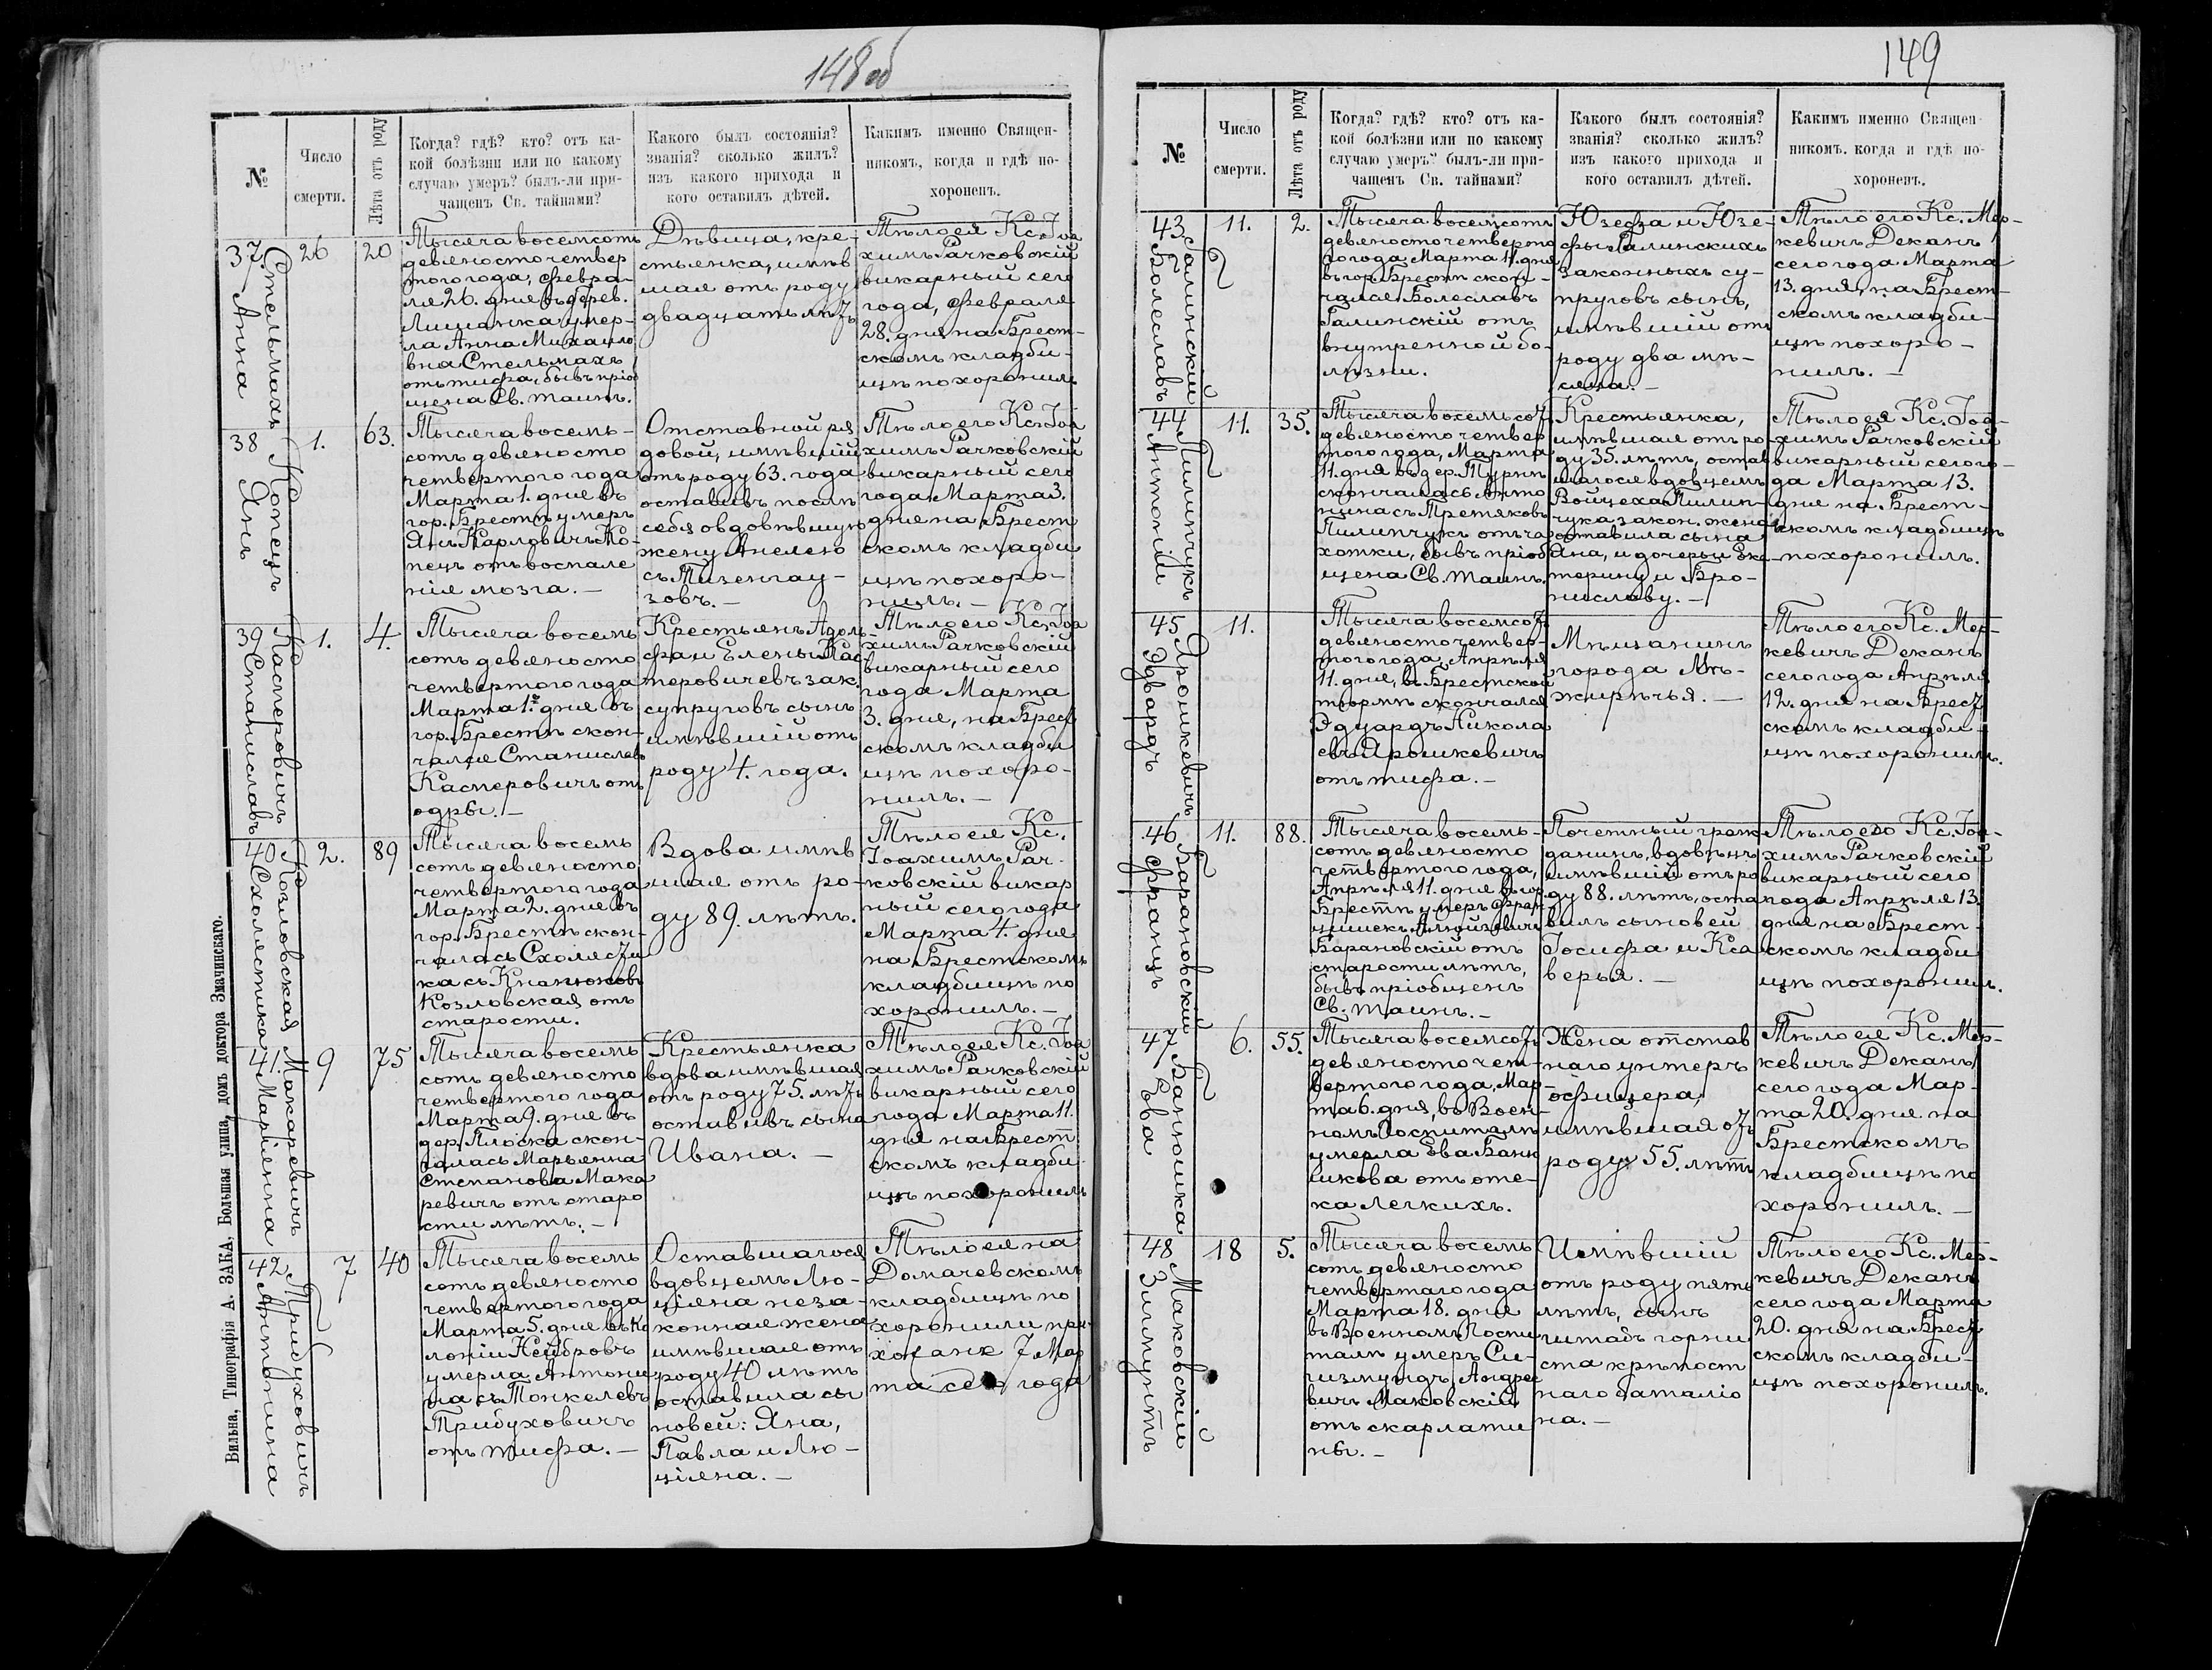 148 об
№
Число
смерти.
Лѣта отъ роду
Когда? гдѣ? кто? отъ ка-
кой болѣзни или по какому
случаю умеръ? былъ-ли при-
чащенъ Св. тайнами?
Какого былъ состоянія?
званія? сколько жилъ?
изъ какого прихода и
кого оставилъ дѣтей.
Какимъ именно Священ-
никомъ, когда и гдѣ по-
хороненъ.
37.
Стельмахъ
Анна
26
20
Тысяча восемсотъ
девяносто четвер
того года, Февра-
ля 26. дня въ дерев.
умер-
ла Анна Михайло
вна Стельмахъ
отъ тифа, бывъ пріоб
щена Св. таинъ.
Дѣвица, кре-
стьянка, имѣв
шая отъ роду
двадцать лѣтъ
Тѣло ея Кс. Іоа
химъ Рачковскій
викарный сего
года, Февраля
28. дня на Брест-
скомъ кладби-
щѣ похоронилъ
38
Копецъ
Янъ
1.
63.
Тысяча восемь-
сотъ девяносто
четвертого года
Марта 1. дня въ
гор. Брестѣ умеръ
Янъ Карловичъ Ко-
пецъ отъ воспале
нія мозга. —
Отставной ря
довой, имѣвшій
отъ роду 63. года
оставивъ послѣ
себя овдовѣвшую
жену Анелю
съ Тизенгау-
зовъ. —
Тѣло его Кс. Іоа
химъ Рачковскій
викарный сего
года Марта 3.
дня на Брест
скомъ кладби
щѣ похоро-
нилъ. —
39
Касперовичъ
Станиславъ
1.
4.
Тысяча восемь
сотъ девяносто
четвертого года
Марта 1. дня въ
гор. Брестѣ скон-
чался Станиславъ
Касперовичъ отъ
одры. —
Крестьянъ Адоль-
фа и Елены Кас-
перовичевъ зак.
супруговъ сынъ
имѣвшій отъ
роду 4. года.
Тѣло его Кс. Іоа
химъ Рачковскій
викарный сего
года Марта
3. дня, на Брест
скомъ кладби
щѣ похоро-
нилъ. —
40.
Козловская
Схоластика
2.
89
Тысяча восемь
сотъ девяносто
четвертого года
Марта 2. дня въ
гор. Брестѣ скон-
чалась Схоласти
ка съ
Козловская отъ
старости.
Вдова имѣв
шая отъ ро-
ду 89. лѣтъ.
Тѣло ея Кс.
Іоахимъ Рач-
ковскій викар
ный сего года
Марта 4. дня
на Брестскомъ
кладбищѣ по
хоронилъ. —
41.
Макаревичъ
Маріянна
9
75
Тысяча восемь
сотъ девяносто
четвертого года
Марта 9. дня въ
дер. Плоска скон-
чалась Марьянна
Степанова Мака
ревичъ отъ старо
сти лѣтъ. —
Крестьянка
вдова имѣвшая
отъ роду 75. лѣтъ
оставивъ сына
Ивана. —
Тѣло ея Кс. Іоа
химъ Рачковскій
викарный сего
года Марта 11.
дня на Брест
скомъ кладби-
щѣ похоронилъ
42.
Трибуховичъ
Антонина
7
40
Тысяча восемь
сотъ девяносто
четвертого года
Марта 5. дня въ Ко
лоніи Нейбровъ
умерла Антони
на съ Тонкелевъ
Трибуховичъ
отъ тифа. —
Оставшагося
вдовцемъ Лю-
ціяна неза-
конная жена
имѣвшая отъ
роду 40 лѣтъ
оставила сы
новей: Яна,
Павла и Лю-
ціяна. —
Тѣло ея на
Домачевскомъ
кладбищѣ по
хоронили при-
хожане 7 Мар
та сего года
Вильна, Типографія А. ЗАКА, Большая улица, домъ доктора Змачинскаго.
149
№
Число
смерти.
Лѣта отъ роду
Когда? гдѣ? кто? отъ ка-
кой болѣзни или по какому
случаю умеръ? былъ-ли при-
чащенъ Св. тайнами?
Какого былъ состоянія?
званія? сколько жилъ?
изъ какого прихода и
кого оставилъ дѣтей.
Какимъ именно Священ-
никомъ, когда и гдѣ по-
хороненъ.
43
Галинскій
Болеславъ
11.
2.
Тысяча восемсотъ
девяносто четверто
го года Марта 11. дня
въ гор. Брестѣ скон-
чался Болеславъ
Галинскій отъ
внутренной бо-
лѣзни.
Юзефа и Юзе-
фы Галинскихъ
законныхъ су-
пруговъ сынъ,
имѣвшій отъ
роду два мѣ-
сяца. —
Тѣло его Кс. Мер-
кевичъ Деканъ
сего года Марта
13. дня, на Брест-
скомъ кладби-
щѣ похоро-
нилъ. —
44
Пилипчукъ
Антоній
11.
35.
Тысяча восемьсотъ
девяносто четвер
того года, Марта
11. дня въ дер. Турнѣ
скончалась Анто
нина съ Третяковъ
Пилипчукъ отъ ча
хотки, бывъ пріоб
щена Св. таинъ.
Крестьянка,
имѣвшая отъ ро-
ду 35. лѣтъ, остав
шагося вдовцемъ
Войцеха Пилип-
чука закон. жена
оставила сына
Яна, и дочерьи Ека-
терину и Бро-
ниславу. —
Тѣло ея Кс. Іоа-
химъ Рачковскій
викарный сего го-
да Марта 13.
дня на Брест-
скомъ кладбищѣ
похоронилъ.
45
Ярошкевичъ
Эдвардъ
11.
Тысяча восемсотъ
девяносто четвер-
того года, Апрѣля
11. дня, въ Брестской
тюрмѣ скончался
Эдуардъ Никола
евъ Ярошкевичъ
отъ тифа. —
Мѣщанинъ
города Мѣ-
жирѣчья. —
Тѣло его Кс. Мер-
кевичъ Деканъ
сего года Апрѣля
12. дня на Брест
скомъ кладби-
щѣ похоронилъ.
46
Барановскій
Францъ
11.
88.
Тысяча восемь-
сотъ девяносто
четвертого года,
Апрѣля 11. дня въ гор.
Брестѣ умеръ Фран
цишекъ Алойзевичъ
Барановскій отъ
старости лѣтъ,
бывъ пріобщенъ
Св. таинъ. —
Почетный граж-
данинъ, вдовецъ
имѣвшій отъ ро
ду 88. лѣтъ, оста
вилъ сыновей
Іосифа и Кса
верья. —
Тѣло его Кс. Іоа-
химъ Рачковскій
викарный сего
года Апрѣля 13.
дня на Брест-
скомъ кладби
щѣ похоронилъ.
47
Банюшка
Ева
6.
55.
Тысяча восемсотъ
девяносто чет-
вертого года, Мар-
та 6. дня, въ Воен-
номъ Госпиталѣ
умерла Ева Баню
шкова отъ оте-
ка легкихъ.
Жена отстав
наго унтеръ
офицера,
имѣвшая отъ
роду 55. лѣтъ
Тѣло ея Кс. Мер-
кевичъ Деканъ
сего года Мар-
та 20. дня на
Брестскомъ
кладбищѣ по
хоронилъ. —
48
Маковскій
Зигмунтъ
18
5.
Тысяча восемь
сотъ девяносто
четвертаго года
Марта 18. дня
въ Военномъ Госпи
талѣ умеръ Си-
гизмундъ Андрее
вичъ Маковскій
отъ скарлати
ны. —
Имѣвшій
отъ роду пять
лѣтъ, сынъ
горни
ста крѣпост
наго баталіо
на. —
Тѣло его Кс. Мер-
кевичъ Деканъ
сего года Марта
20. дня на Брест
скомъ кладби-
щѣ похоронилъ.